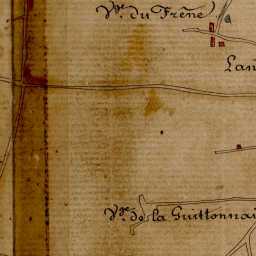 V.ge du Frêne
Lan
V.ge de la Guittonnai